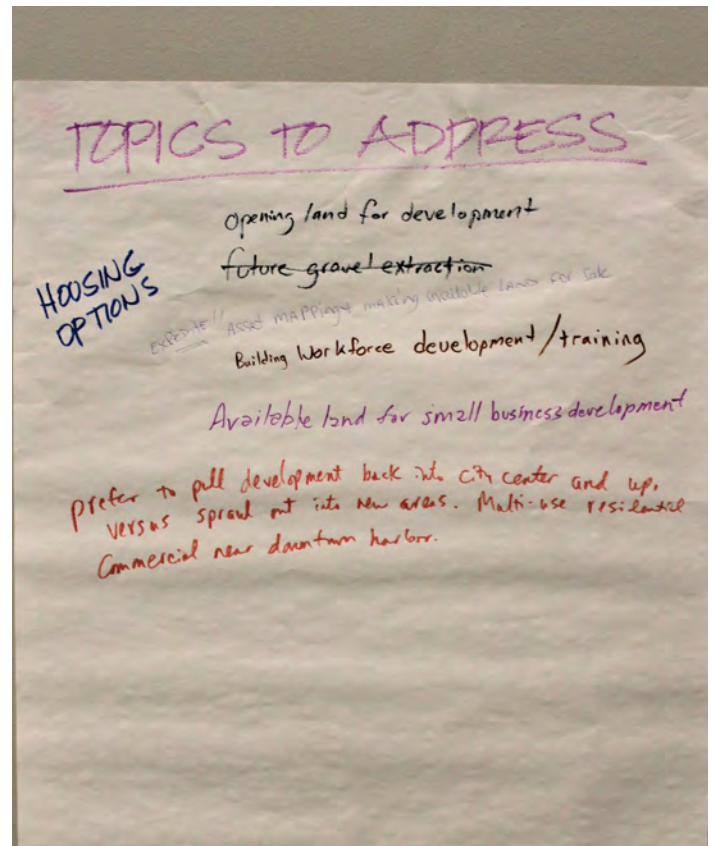 TOPICS TO ADDRESS
opening land for development
future gravel extraction
HOUSING
OPTIONS
EXPEDITE!! Asset MAPPING & making available LAND for sale
Building Workforce development/training
Available land for small business development
prefer to pull development back into city center and up,
versus sprawl out into new areas. Multi-use residential
Commercial near downtown harbor.